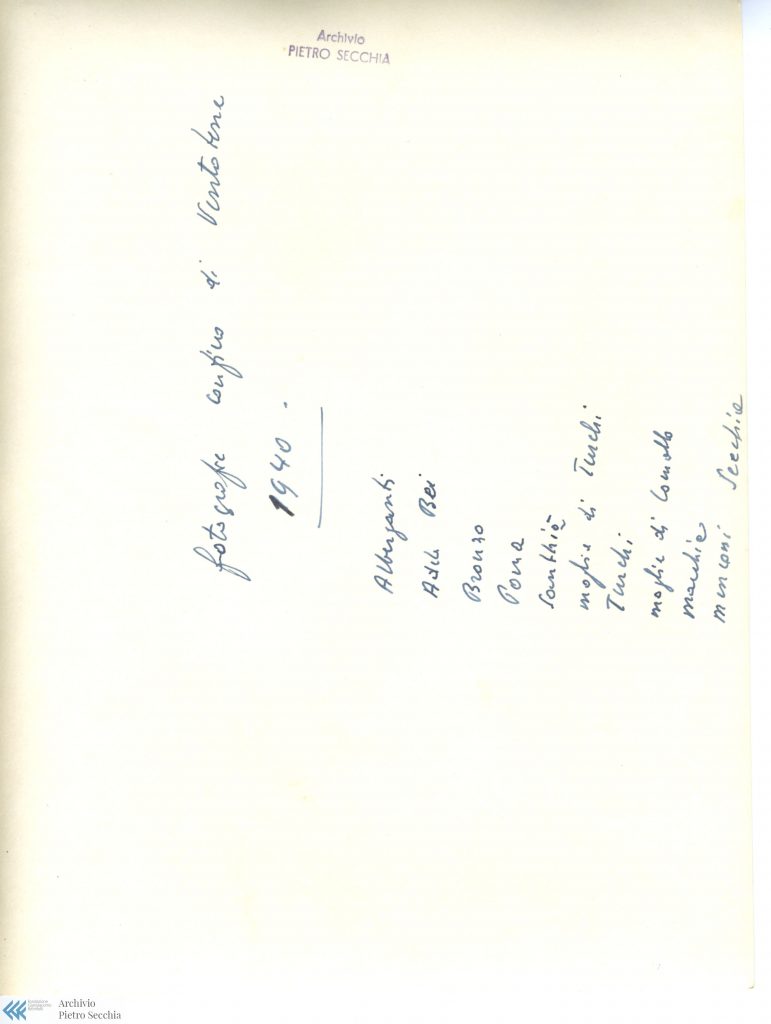 Archivio
PIETRO SECCHIA
fotografie confino di Ventotene
1940.
Alberganti
Adele Bei
Bronzo
Poma
Santhià
moglie di Turchi
Turchi
moglie di Comollo
Menconi Secchia
Archivio
Pietro Secchia